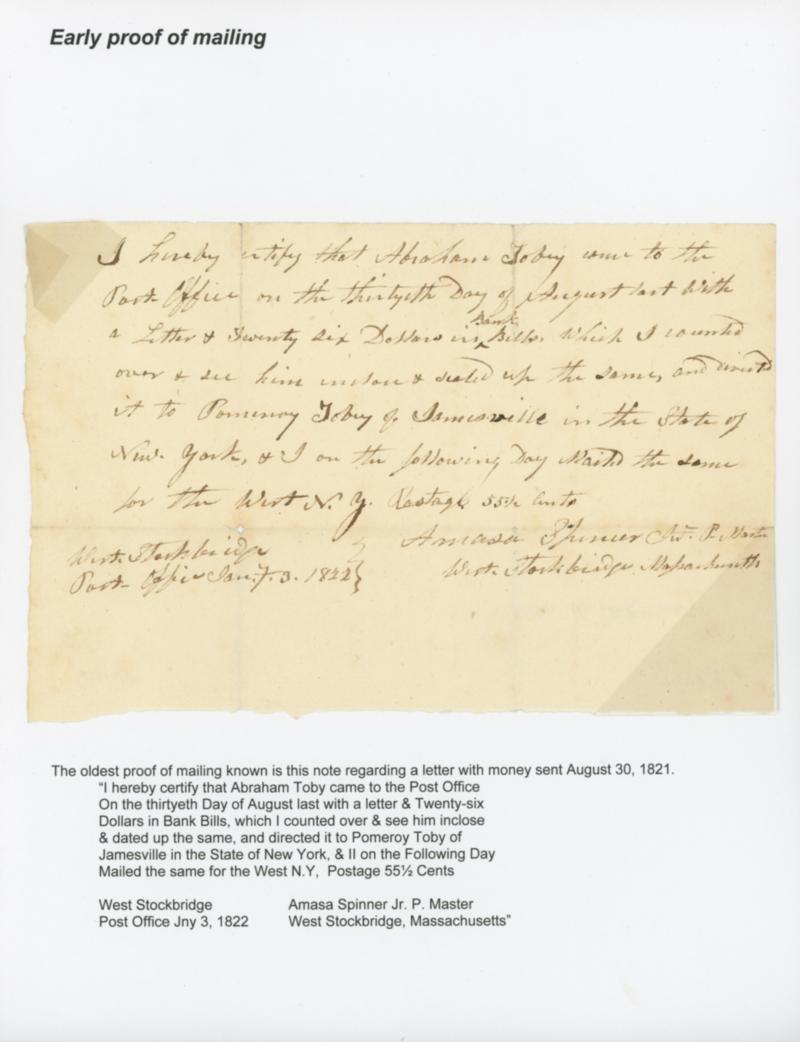 Early proof of mailing
I hereby certify that Abraham Tobey came to the
Post Office on the thirtyeth Day of August last with
a Letter & Twenty six Dollars in Bank Bills, which I counted
over & see him inclose & sealed up the same, and directd
it to Pomeroy Tobey of Jamesville in the State of
New York, & I on the following Day Maild the same
for the West N. Y. Postage 55½ Cents
Amasa Spencer Jur. P. Master
West Stockbridge
Post Office Jany. 3. 1822
West Stockbridge Massachusetts
The oldest proof of mailing known is this note regarding a letter with money sent August 30, 1821.
"I hereby certify that Abraham Toby came to the Post Office
On the thirtyeth Day of August last with a letter & Twenty-six
Dollars in Bank Bills, which I counted over & see him inclose
& dated up the same, and directed it to Pomeroy Toby of
Jamesville in the State of New York, & II on the Following Day
Mailed the same for the West N.Y, Postage 55½ Cents
West Stockbridge
Post Office Jny 3, 1822
Amasa Spinner Jr. P. Master
West Stockbridge, Massachusetts"